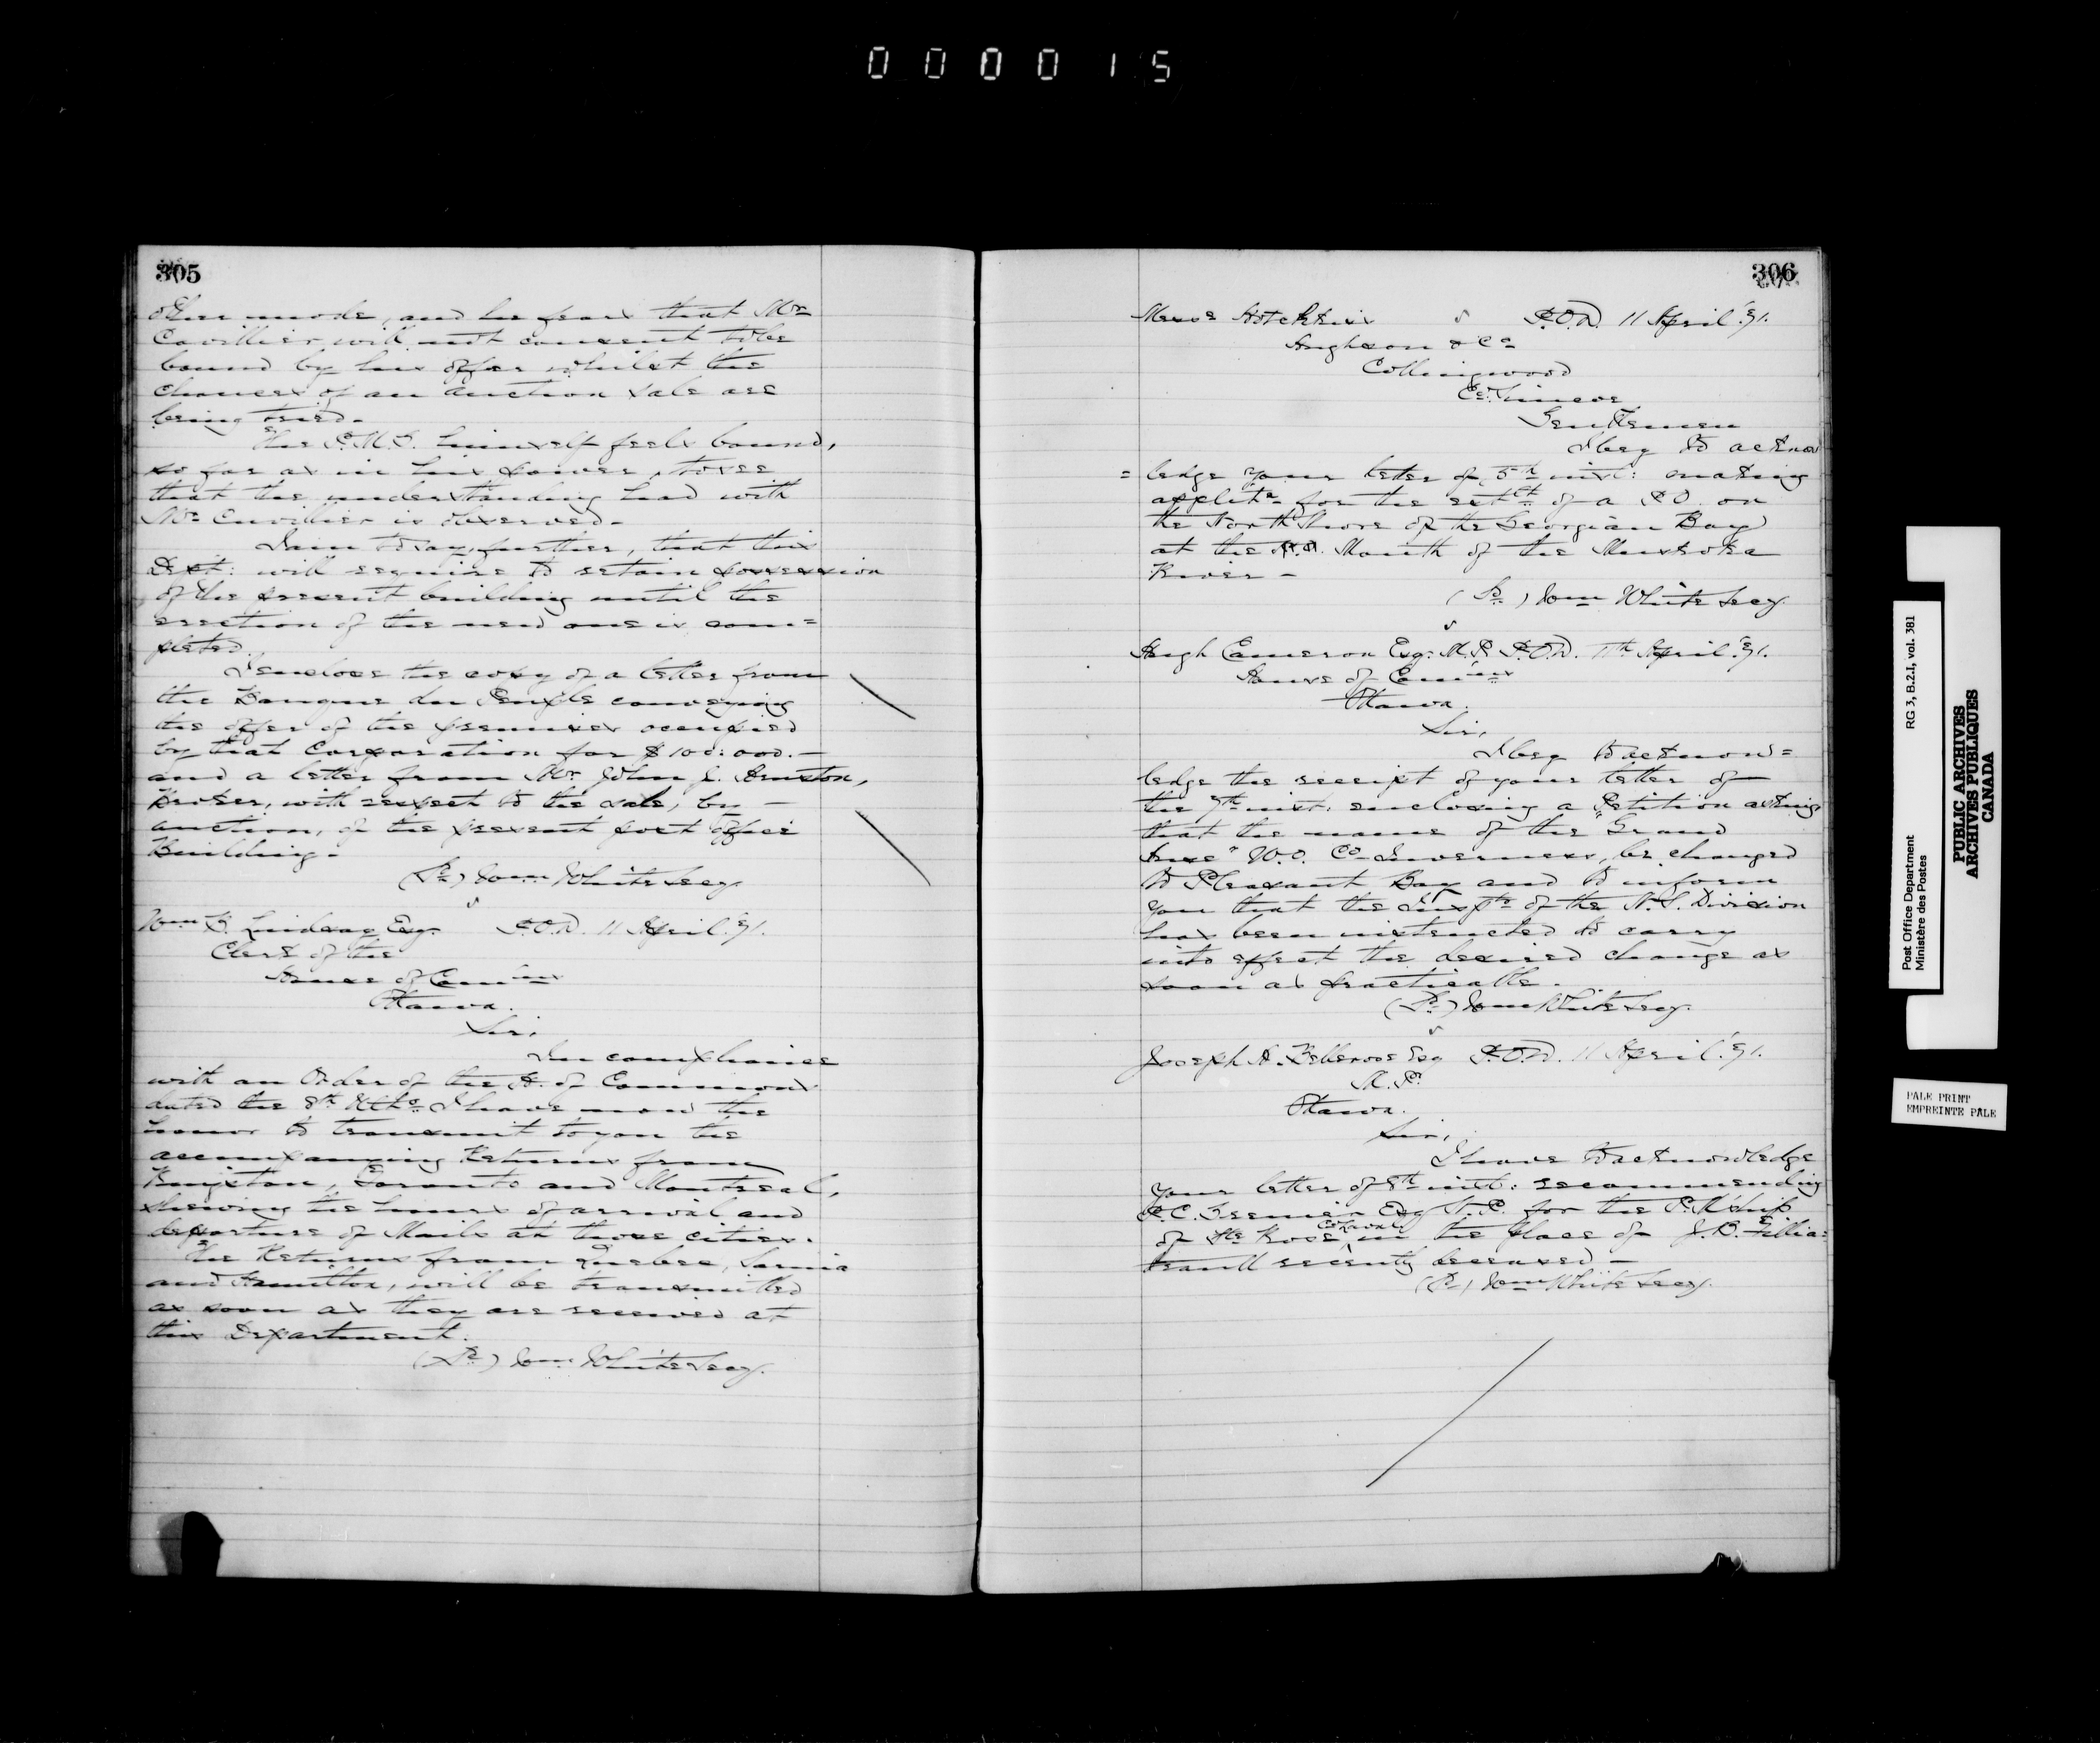 000015
305
other mode, and he fears that Mr
Cuvillier will not consent to be
bound by his offer whilst the
chances of an auction sale are
being tried.
The P.M.G. himself feels bound,
so far as in his power, to see
that the understanding had with
Mr Cuvillier is observed.
I am to say, further, that this
Dept: will require to retain possession
of the present building until the
erection of the new one is com=
pleted.
I enclose the copy of a letter from
the Banque du Peuple conveying
the offer of the premises occupied
by that Corporation for $100:000.—
and a letter from Mr John J. Arnton,
Broker, with respect to the sale, by —
auction, of the present post office
Building.
(Sd) Wm White Secy.
Wm B. Lindsay Esq. P.O.D. 11 April '71.
Clerk of the
House of Commns
Ottawa.
Sir,
In compliance
with an Order of the H. of Commons
dated the 8th Ulto. I have now the
honor to transmit to you the
accompanying Returns from
Kingston, Toronto and Montreal,
shewing the hours of arrival and
departure of Mails at those cities.
The Returns from Quebec, Sarnia
and Hamilton, will be transmitted
as soon as they are received at
this Department.
(Sd) Wm White Secy.
306
Messrs Hotchkiss P.O.D. 11 April '71.
Hughson & Co
Collingwood
Co. Simcoe
Gentlemen
I beg to acknow
= ledge your letter of 5th inst: making
applictn for the estlt of a P.O. on
the North Shore of the Georgian Bay
at the Mouth of the Muskoka
River —
(Sd) Wm White Secy.
Hugh Cameron Esq. M.P. P.O.D. 11th April '71.
House of Commns
Ottawa.
Sir,
I beg to acknow=
ledge the receipt of your letter of
the 7th inst. enclosing a Petition asking
that the name of the "Grand
Anse" W.O. Co Inverness, be changed
to Pleasant Bay and to inform
you that the Inspr of the N.S. Division
has been instructed to carry
into effect the desired change as
soon as practicable.
(Sd) Wm White Secy.
Joseph H. Bellerose Esq P.O.D. 11 April '71.
M.P.
Ottawa.
Sir,
I have to acknowledge
your letter of 8th inst: recommending
Esq N.P. for the P.M'ship
of Ste Rose, Co Laval, in the place of J.B.
recently deceased —
(Sd) Wm White Secy.
Post Office Department RG 3, B.2.1, vol. 381
Ministère des Postes
PUBLIC ARCHIVES
ARCHIVES PUBLIQUES
CANADA
PALE PRINT
EMPREINTE PÂLE